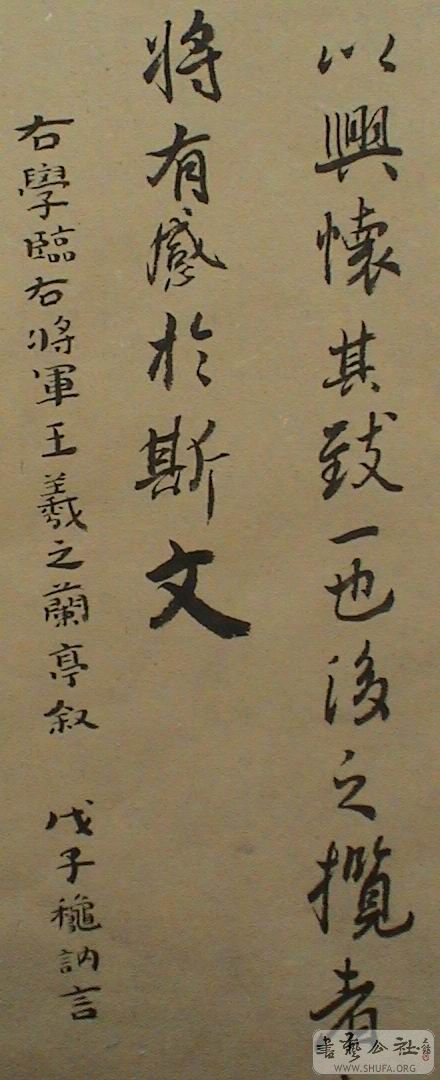 以興懷其致一也後之攬者
將有感於斯文
右學臨右將軍王羲之蘭亭叙 戊子龝訥言
書藝公社
WWW.SHUFA.ORG